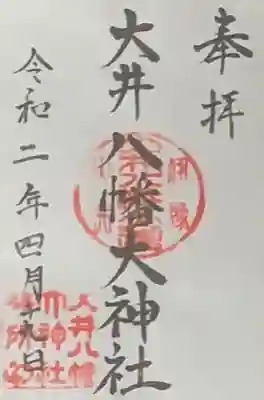 奉拝
大井八幡大神社
令和二年四月十九日
大井八幡
大神社